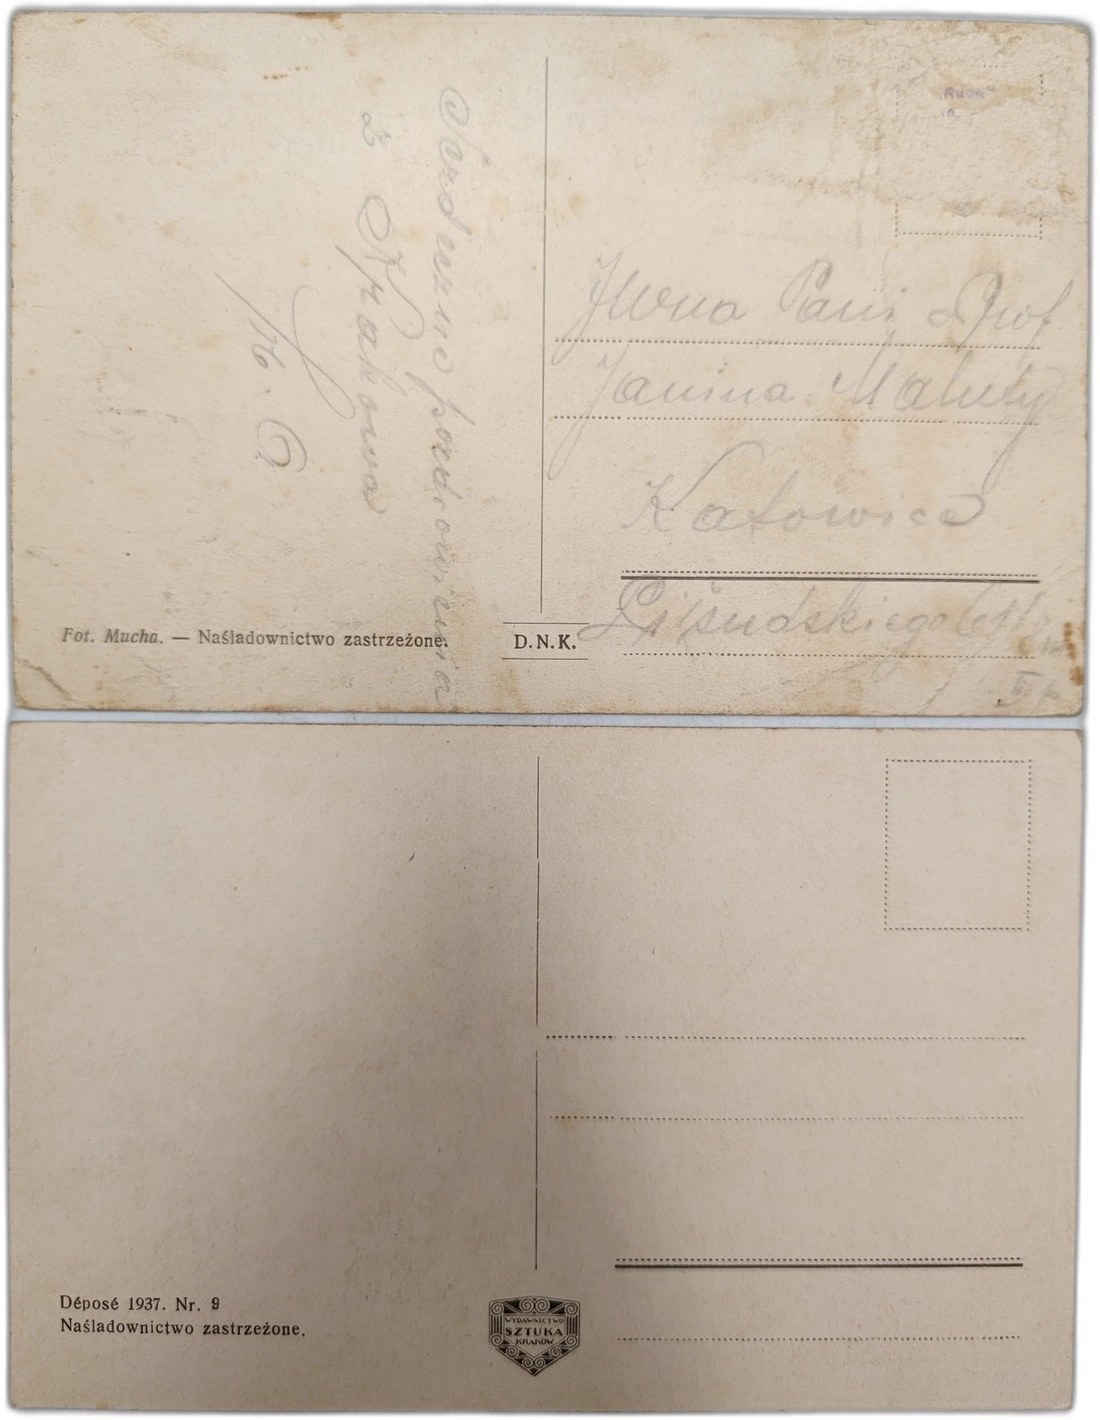 Serdeczne pozdrowienia
z Krakowa
"Ruch"
Pani Prof.
Janina
Katowice
Piłsudskiego
Fot. Mucha. — Naśladownictwo zastrzeżone.
D.N.K.
Déposé 1937. Nr. 9
Naśladownictwo zastrzeżone.
WYDAWNICTWO
SZTUKA
KRAKÓW